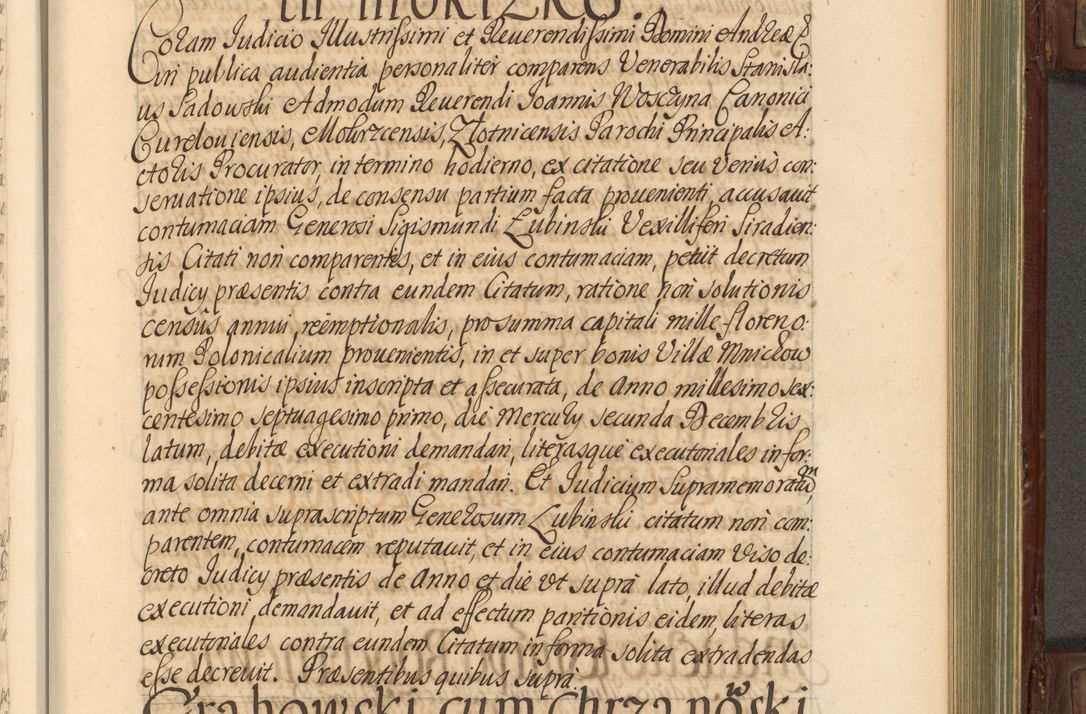 in mokrzko.
Coram Judicio Illustrissimi et Reverendissimi Domini Andreæ E
in publica audientia personaliter comparens Venerabilis Stanisla:
us Sadowski Admodum Reverendi Joannis Woszyna Canonici
Curelouiensis, Mokrzcensis, Złotnicensis Parochi Principalis A:
ctoris Procurator, in termino hodierno, ex citatione seu verius con:
seruatione ipsius, de consensu partium facta prouenienti, accusauit
contumaciam Generosi Sigismundi Łubinski Vexilliferi Siradien:
sis Citati non comparentis, et in eius contumaciam, petiit decretum
Judicy præsentis contra eundem Citatum, ratione non solutionis
censûs annui, reemptionalis, pro summa capitali mille floreno:
rum Polonicalium prouenientis, in et super bonis Villæ Mnichow
possessionis ipsius inscripta et assecurata, de Anno millesimo sex:
centesimo septuagesimo primo, die Mercury secunda Decembris
latum, debitæ executioni demandari, literasque executoriales in for:
ma solita decerni et extradi mandari. Et Judicium Supramemoratum
ante omnia suprascriptum Generosum Łubinski citatum non com:
parentem, contumacem reputauit, et in eius contumaciam viso de:
creto Judicy præsentis de Anno et die vt supra lato, illud debitæ
executioni demandauit, et ad effectum paritionis eidem, literas
executoriales contra eundem Citatum in forma solita extradendas
esse decreuit. Præsentibus quibus supra.
Grabowski cum Chrzanowski